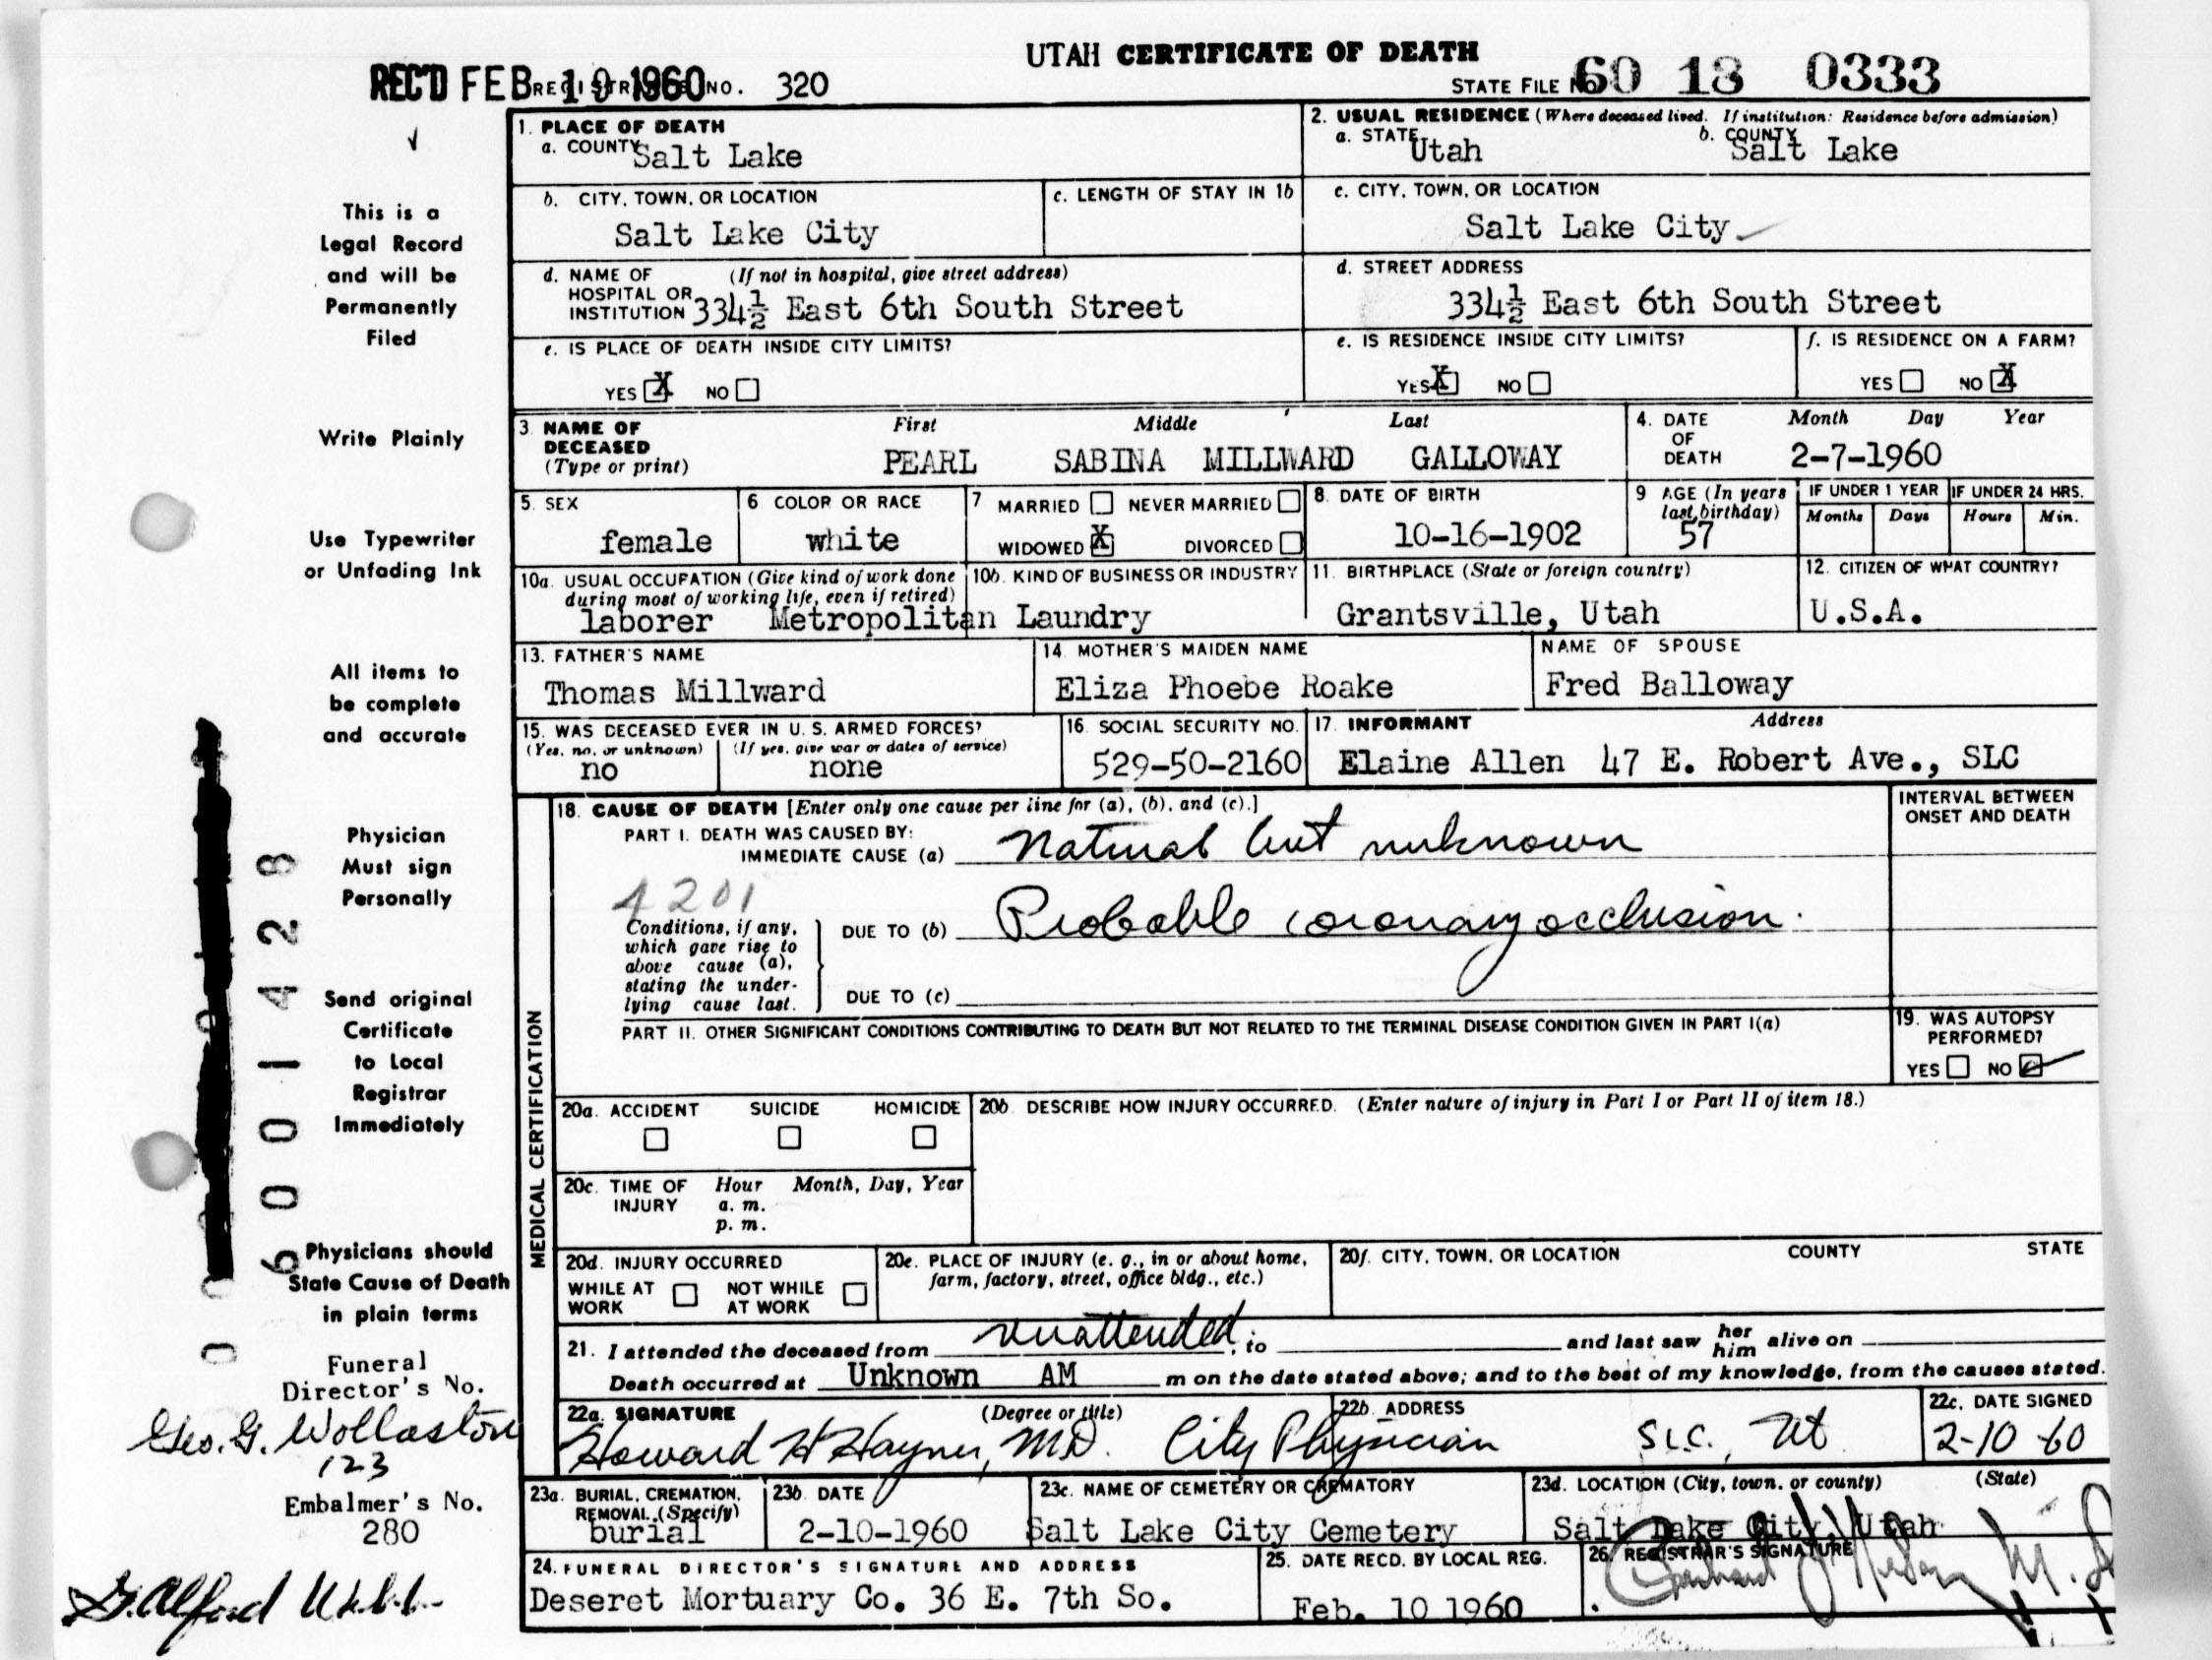 UTAH CERTIFICATE OF DEATH
REC'D FEB 19 1960 REGISTRAR'S NO. 320
STATE FILE NO. 60 18 0333
1. PLACE OF DEATH
a. COUNTY Salt Lake
2. USUAL RESIDENCE (Where deceased lived. If institution: Residence before admission)
a. STATE Utah b. COUNTY Salt Lake
b. CITY, TOWN, OR LOCATION
Salt Lake City
c. LENGTH OF STAY IN 1b
c. CITY, TOWN, OR LOCATION
Salt Lake City
d. NAME OF (If not in hospital, give street address)
HOSPITAL OR
INSTITUTION 334½ East 6th South Street
d. STREET ADDRESS
334½ East 6th South Street
e. IS PLACE OF DEATH INSIDE CITY LIMITS?
YES X NO
e. IS RESIDENCE INSIDE CITY LIMITS?
YES X NO
f. IS RESIDENCE ON A FARM?
YES NO X
3. NAME OF DECEASED (Type or print)
First Middle Last
PEARL SABINA MILLWARD GALLOWAY
4. DATE OF DEATH Month Day Year
2-7-1960
5. SEX
female
6 COLOR OR RACE
white
7 MARRIED NEVER MARRIED
WIDOWED X DIVORCED
8. DATE OF BIRTH
10-16-1902
9 AGE (In years last birthday)
57
IF UNDER 1 YEAR
Months Days
IF UNDER 24 HRS.
Hours Min.
10a. USUAL OCCUPATION (Give kind of work done during most of working life, even if retired)
10b. KIND OF BUSINESS OR INDUSTRY
laborer Metropolitan Laundry
11. BIRTHPLACE (State or foreign country)
Grantsville, Utah
12. CITIZEN OF WHAT COUNTRY?
U.S.A.
13. FATHER'S NAME
Thomas Millward
14. MOTHER'S MAIDEN NAME
Eliza Phoebe Roake
NAME OF SPOUSE
Fred Balloway
15. WAS DECEASED EVER IN U. S. ARMED FORCES?
(Yes, no, or unknown) (If yes, give war or dates of service)
no none
16. SOCIAL SECURITY NO.
529-50-2160
17. INFORMANT Address
Elaine Allen 47 E. Robert Ave., SLC
MEDICAL CERTIFICATION
18. CAUSE OF DEATH [Enter only one cause per line for (a), (b), and (c).]
INTERVAL BETWEEN ONSET AND DEATH
PART I. DEATH WAS CAUSED BY:
IMMEDIATE CAUSE (a) Natural but unknown
4201
Conditions, if any, which gave rise to above cause (a), stating the underlying cause last.
DUE TO (b) Probable coronary occlusion.
DUE TO (c)
PART II. OTHER SIGNIFICANT CONDITIONS CONTRIBUTING TO DEATH BUT NOT RELATED TO THE TERMINAL DISEASE CONDITION GIVEN IN PART I(a)
19. WAS AUTOPSY PERFORMED?
YES NO
20a. ACCIDENT SUICIDE HOMICIDE
20b. DESCRIBE HOW INJURY OCCURRED. (Enter nature of injury in Part I or Part II of item 18.)
20c. TIME OF INJURY Hour Month, Day, Year
a. m.
p. m.
20d. INJURY OCCURRED
WHILE AT WORK NOT WHILE AT WORK
20e. PLACE OF INJURY (e. g., in or about home, farm, factory, street, office bldg., etc.)
20f. CITY, TOWN, OR LOCATION COUNTY STATE
21. I attended the deceased from unattended, to and last saw her him alive on
Death occurred at Unknown AM m on the date stated above; and to the best of my knowledge, from the causes stated.
22a. SIGNATURE (Degree or title)
Howard H Hayner, M.D. City Physician
22b. ADDRESS
S.L.C., Ut
22c. DATE SIGNED
2-10-60
23a. BURIAL, CREMATION, REMOVAL (Specify)
burial
23b. DATE
2-10-1960
23c. NAME OF CEMETERY OR CREMATORY
Salt Lake City Cemetery
23d. LOCATION (City, town, or county) (State)
Salt Lake City, Utah
24. FUNERAL DIRECTOR'S SIGNATURE AND ADDRESS
Deseret Mortuary Co. 36 E. 7th So.
25. DATE RECD. BY LOCAL REG.
Feb. 10 1960
26. REGISTRAR'S SIGNATURE
This is a
Legal Record
and will be
Permanently
Filed
Write Plainly
Use Typewriter
or Unfading Ink
All items to
be complete
and accurate
Physician
Must sign
Personally
Send original
Certificate
to Local
Registrar
Immediately
Physicians should
State Cause of Death
in plain terms
6001428
Funeral
Director's No.
Geo. G. Wollaston
123
Embalmer's No.
280
G. Alford Webb